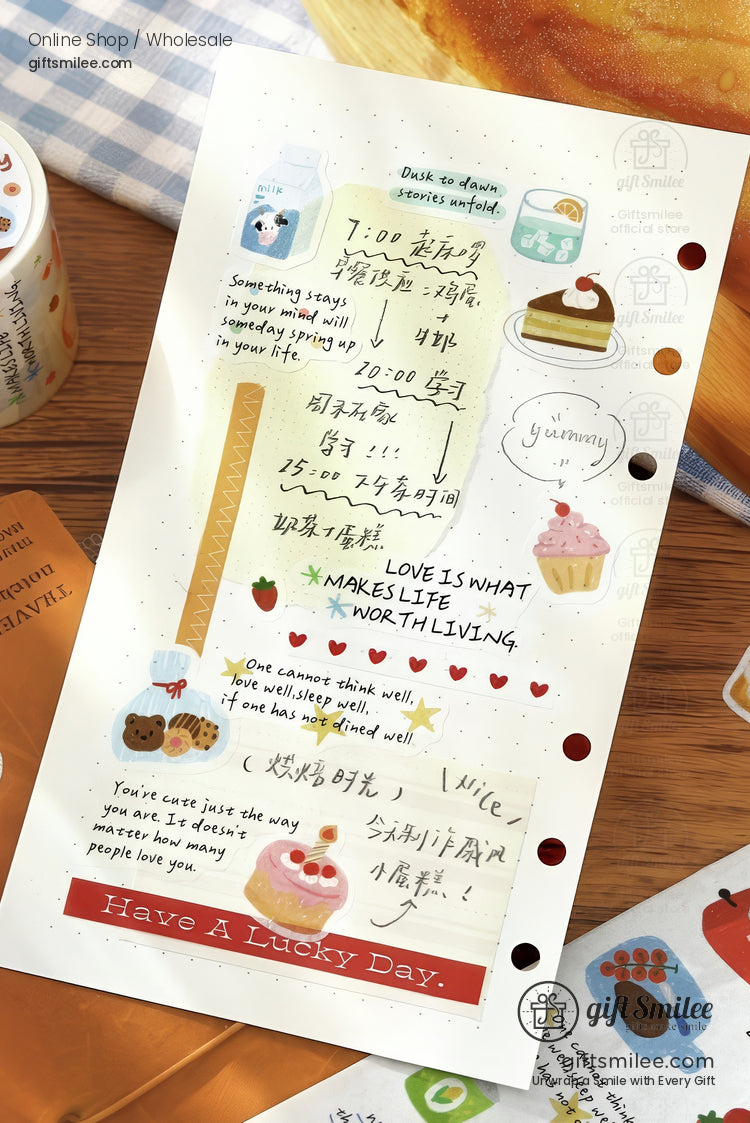 Online Shop / Wholesale
giftsmilee.com
gift Smilee
Giftsmilee
official store
milk
Dusk to dawn
stories unfold.
7:00 起床啰
早餐供应:鸡蛋
+
牛奶
Something stays
in your mind will
someday spring up
in your life.
gift Smilee
10:00 学习
周末在家
学习!!!
15:00 下午茶时间
奶茶+蛋糕
yummy
gift Smilee
Giftsmilee
LOVE IS WHAT
MAKES LIFE
WORTH LIVING.
One cannot think well,
love well, sleep well,
if one has not dined well
(烘焙时光)
\Nice/
今天制作戚风
小蛋糕!
You're cute just the way
you are. It doesn't
matter how many
people love you.
Have A Lucky Day.
TRAVEL
MAKES LIFE
WORTH LIVING.
gift Smilee
gifts make smile
giftsmilee.com
Unwrap a Smile with Every Gift